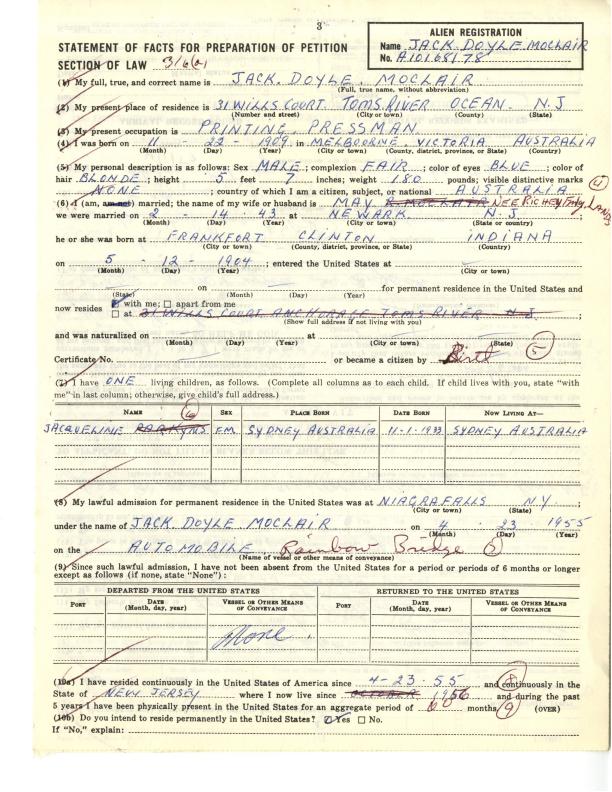 3
ALIEN REGISTRATION
STATEMENT OF FACTS FOR PREPARATION OF PETITION
Name JACK. DOYLE. MOCLAIR
SECTION OF LAW 316(a)
No. A10168178
(1) My full, true, and correct name is JACK. DOYLE. MOCLAIR
(Full, true name, without abbreviation)
(2) My present place of residence is 31 WILLS COURT. TOMS. RIVER OCEAN. N. J
(Number and street) (City or town) (County) (State)
(3) My present occupation is PRINTING. PRESSMAN.
(4) I was born on 11 - 22 - 1909. in MELBOURNE. VICTORIA AUSTRALIA
(Month) (Day) (Year) (City or town) (County, district, province, or State) (Country)
(5) My personal description is as follows: Sex MALE; complexion FAIR; color of eyes BLUE; color of
hair BLONDE; height 5 feet 7 inches; weight 180 pounds; visible distinctive marks
NONE; country of which I am a citizen, subject, or national AUSTRALIA
(6) I (am, am not) married; the name of my wife or husband is MAY. R MOCLAIR NEE RICHEY
we were married on 2 - 14 - 43. at NEWARK. N. J.
(Month) (Day) (Year) (City or town) (State or country)
he or she was born at FRANKFORT CLINTON INDIANA
(City or town) (County, district, province, or State) (Country)
on 5 - 12 - 1904; entered the United States at
(Month) (Day) (Year) (City or town)
on for permanent residence in the United States and
(State) (Month) (Day) (Year)
now resides with me; apart from me
at 31 WILLS COURT ANCHORAGE TOMS RIVER N J;
(Show full address if not living with you)
and was naturalized on at
(Month) (Day) (Year) (City or town) (State)
Certificate No. or became a citizen by Birth 5
(7) I have ONE living children, as follows. (Complete all columns as to each child. If child lives with you, state "with
me" in last column; otherwise, give child's full address.)
NAME 6 SEX PLACE BORN DATE BORN NOW LIVING AT—
JACQUELINE FM. SYDNEY AUSTRALIA 11-1-1933 SYDNEY AUSTRALIA
(8) My lawful admission for permanent residence in the United States was at NIAGRA FALLS N.Y.;
(City or town) (State)
under the name of JACK. DOYLE. MOCLAIR on 4 . 23 . 1955
(Month) (Day) (Year)
on the AUTOMOBILE. Rainbow Bridge
(Name of vessel or other means of conveyance)
(9) Since such lawful admission, I have not been absent from the United States for a period or periods of 6 months or longer
except as follows (if none, state "None"):
DEPARTED FROM THE UNITED STATES RETURNED TO THE UNITED STATES
PORT DATE (Month, day, year) VESSEL OR OTHER MEANS OF CONVEYANCE PORT DATE (Month, day, year) VESSEL OR OTHER MEANS OF CONVEYANCE
None
(10a) I have resided continuously in the United States of America since 4-23-55 and continuously in the 8
State of NEW JERSEY where I now live since OCTOBER 1956 and during the past
5 years I have been physically present in the United States for an aggregate period of 60 months. 9 (OVER)
(10b) Do you intend to reside permanently in the United States? Yes No.
If "No," explain: